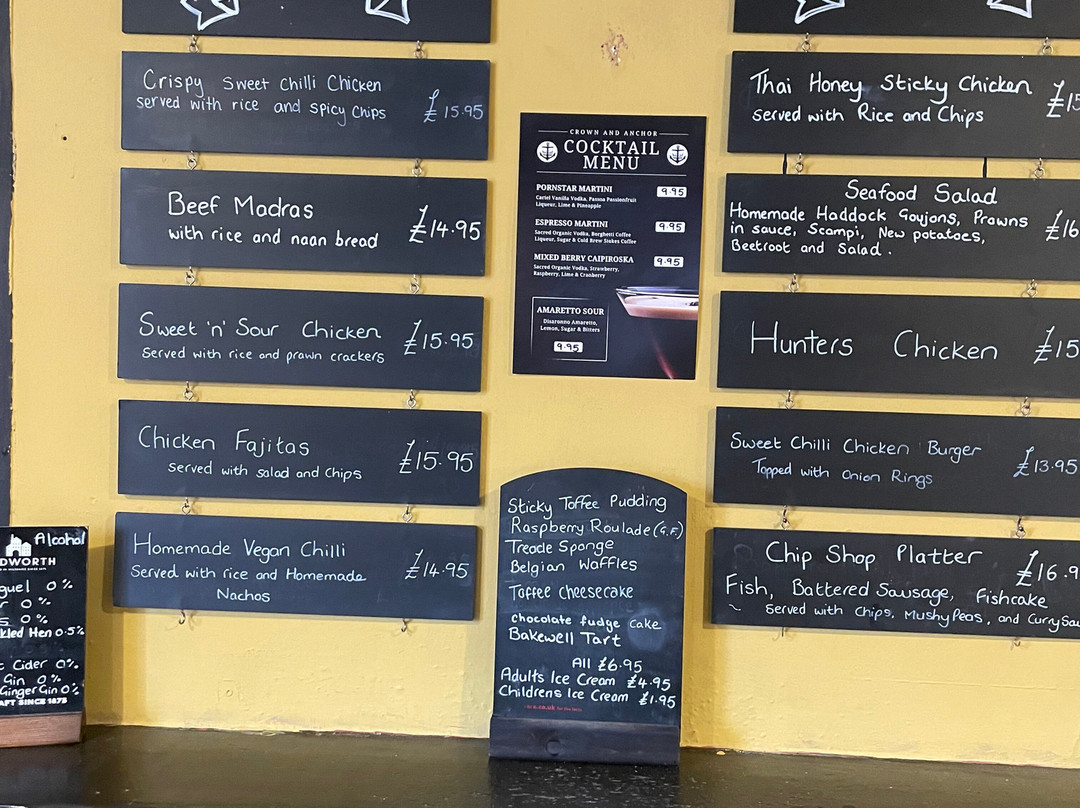 Crispy Sweet Chilli Chicken
served with rice and spicy Chips £15.95
Beef Madras
with rice and naan bread £14.95
Sweet 'n' Sour Chicken
Served with rice and prawn crackers £15.95
Chicken Fajitas
served with salad and Chips £15.95
Homemade Vegan Chilli
Served with rice and Homemade £14.95
Nachos
Alcohol
DWORTH
guel 0%
0%
0%
kled Hen 0.5%
Cider 0%
Gin 0%
Ginger Gin 0%
AFT SINCE 1875
CROWN AND ANCHOR
COCKTAIL
MENU
PORNSTAR MARTINI 9.95
Cartel Vanilla Vodka, Passoa Passionfruit
Liqueur, Lime & Pineapple
ESPRESSO MARTINI 9.95
Sacred Organic Vodka, Borghetti Coffee
Liqueur, Sugar & Cold Brew Stakes Coffee
MIXED BERRY CAIPIROSKA 9.95
Sacred Organic Vodka, Strawberry,
Raspberry, Lime & Cranberry
AMARETTO SOUR
Disaronno Amaretto,
Lemon, Sugar & Bitters
9.95
Sticky Toffee Pudding
Raspberry Roulade (G.F.)
Treacle Sponge
Belgian Waffles
Toffee Cheesecake
chocolate fudge cake
Bakewell Tart
All £6.95
Adults Ice Cream £4.95
Childrens Ice Cream £1.95
Thai Honey Sticky Chicken £15
served with Rice and Chips
Seafood Salad
Homemade Haddock Goujons, Prawns £16
in sauce, Scampi, New potatoes,
Beetroot and Salad.
Hunters Chicken £15
Sweet Chilli Chicken Burger
Topped with Onion Rings £13.95
Chip Shop Platter £16.9
Fish, Battered Sausage, Fishcake
~ Served with Chips, Mushy Peas, and Curry Sau